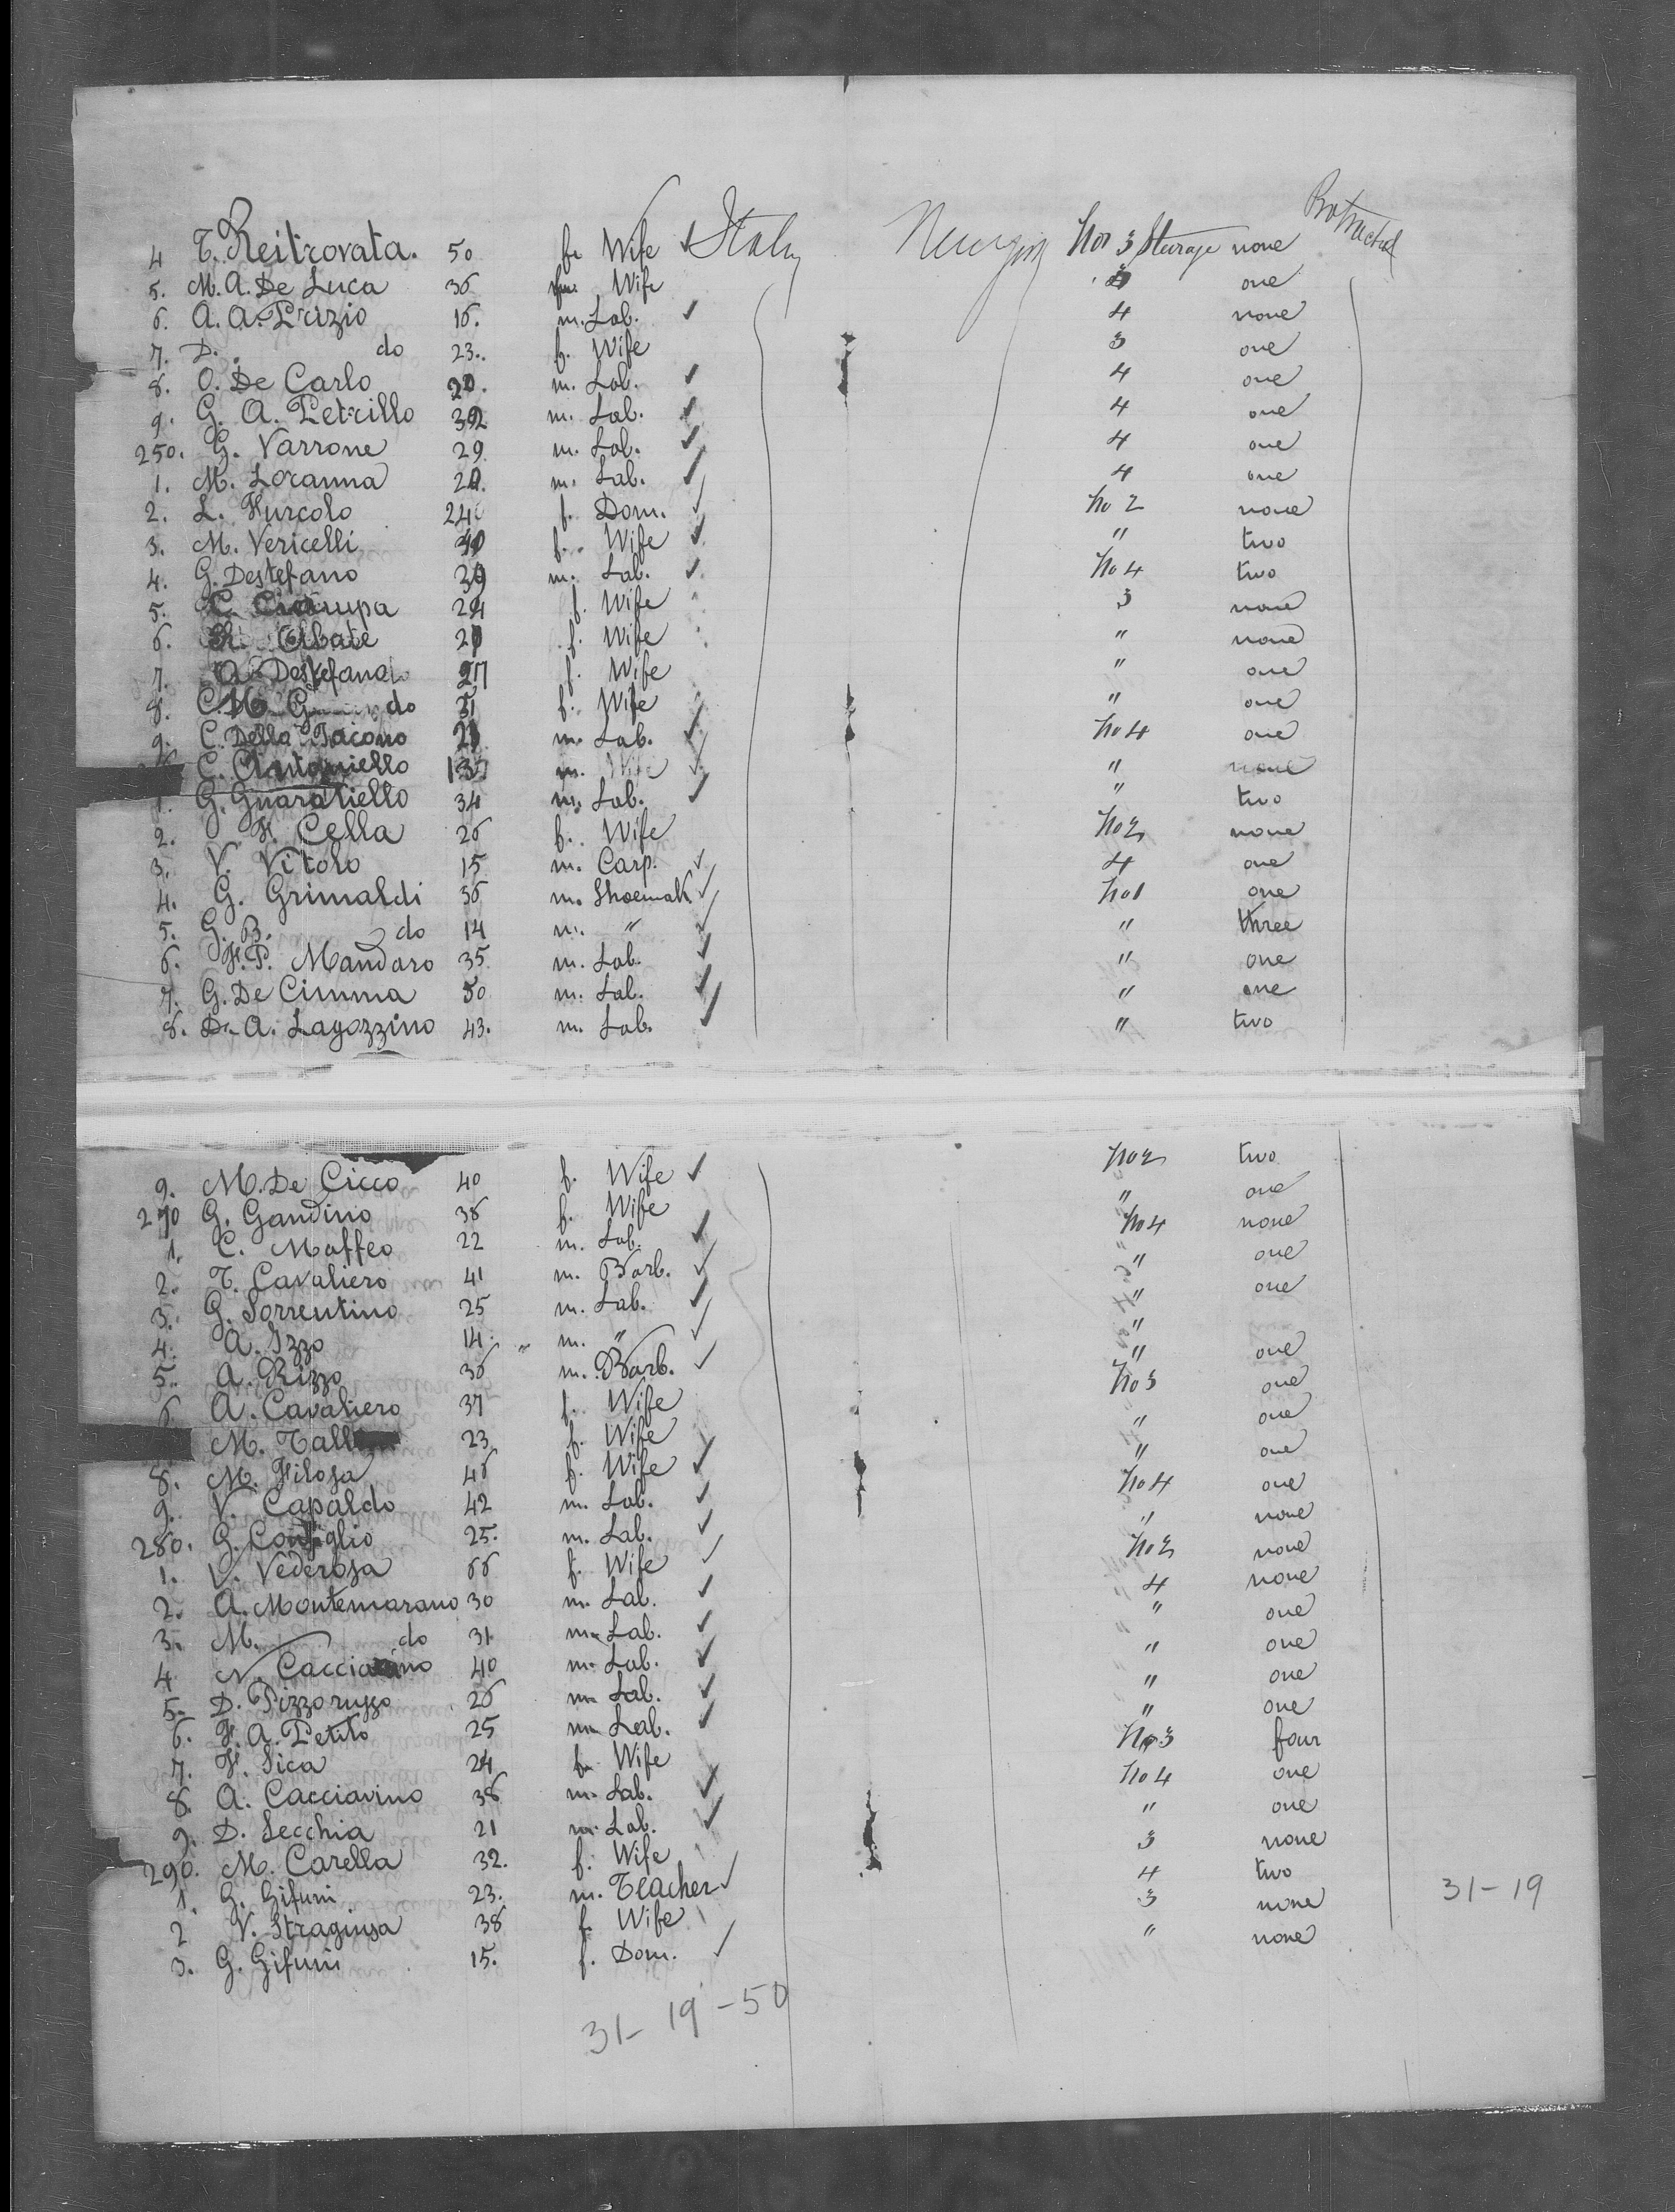 4 T. Reitrovata. 50 f. Wife ✓ Italy New York No 3 Steerage none Protracted
5. M. A. De Luca 36 Wife one
6. A. A. Prizio 16. m. Lab. ✓ 4 none
7. D. do 23. f. Wife 3 one
8. O. De Carlo 20. m. Lab. ✓ 4 one
9. G. A. Petrillo 32 m. Lab. ✓ 4 one
250. G. Varrone 29. m. Lab. ✓ 4 one
1. M. Loranna m. Lab. ✓ 4 one
2. L. Furcolo 24 f. Dom. ✓ No 2 none
3. M. Vericelli f. Wife ✓ " two
4. G. Destefano m. Lab. ✓ No 4 two
5. C. Ciampa 24 f. Wife 3 none
6. Abate f. Wife " none
7. A. Destefano f. Wife " one
8. C. M. G do 31 f. Wife " one
9. C. Dello Iacono m. Lab. ✓ No 4 one
C. Antoniello m. ✓ " none
1. G. Guarariello 34 m. Lab. ✓ " two
2. F. Cella 26 f. Wife No 2 none
3. V. Vitolo 15 m. Carp. ✓ 4 one
4. G. Grimaldi 36 m. Shoemak ✓ No 1 one
5. G. B. do 14 m. " ✓ " three
6. F. P. Mandaro 35 m. Lab. ✓ " one
7. G. De Cimma 50 m. Lab. ✓ " one
8. D. A. Lagozzino 43. m. Lab. ✓ " two
9. M. De Cicco 40 f. Wife ✓ No 2 two
270 G. Gandino 38 f. Wife " one
1. C. Maffeo 22 m. Lab. ✓ No 4 none
2. T. Cavaliero 41 m. Barb. ✓ " one
3. G. Sorrentino 25 m. Lab. ✓ " one
4. A. Izzo 14. " m. " ✓ "
5. A. Rizzo 36 m. Barb. ✓ " one
6 A. Cavaliero 37 f. Wife No 3 one
M. Tall 23 f. Wife " one
8. M. Filosa 46 f. Wife ✓ " one
9. V. Capaldo 42 m. Lab. ✓ No 4 one
280. G. Coniglio 25. m. Lab. ✓ " none
1. V. Vederosa 66 f. Wife ✓ No 2 none
2. A. Montemarano 30 m. Lab. ✓ 4 none
3. M. do 31 m. Lab. ✓ " one
4 N. Cacciavino 40 m. Lab. ✓ " one
5. D. Pizzoruzzo 26 m. Lab. ✓ " one
6. F. A. Petito 25 m. Lab. ✓ " one
7. F. Sica 24 f. Wife No 3 four
8. A. Cacciavino 38 m. Lab. ✓ No 4 one
9. D. Secchia 21 m. Lab. ✓ " one
290. M. Carella 32. f. Wife 3 none
1. G. Gifuni 23. m. Teacher ✓ 4 two
2 V. Straginsa 38 f. Wife 3 none
3. G. Gifuni 15. f. Dom. ✓ " none
31-19
31-19-50